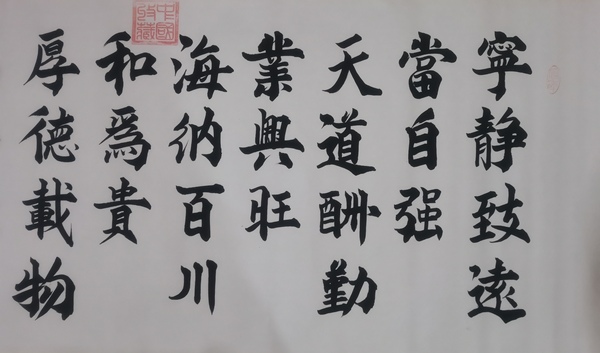 寧静致遠
當自强
天道酬勤
業興旺
海纳百川
和爲貴
厚德載物
中國收藏